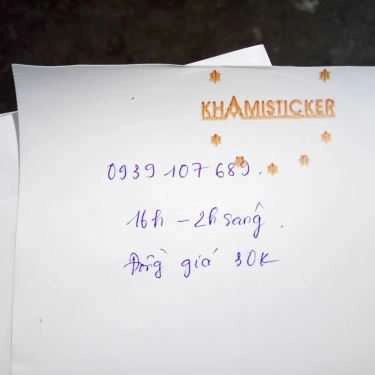 KHAMISTICKER
0939 107 689.
16h - 2h sáng.
Đồng giá 30K